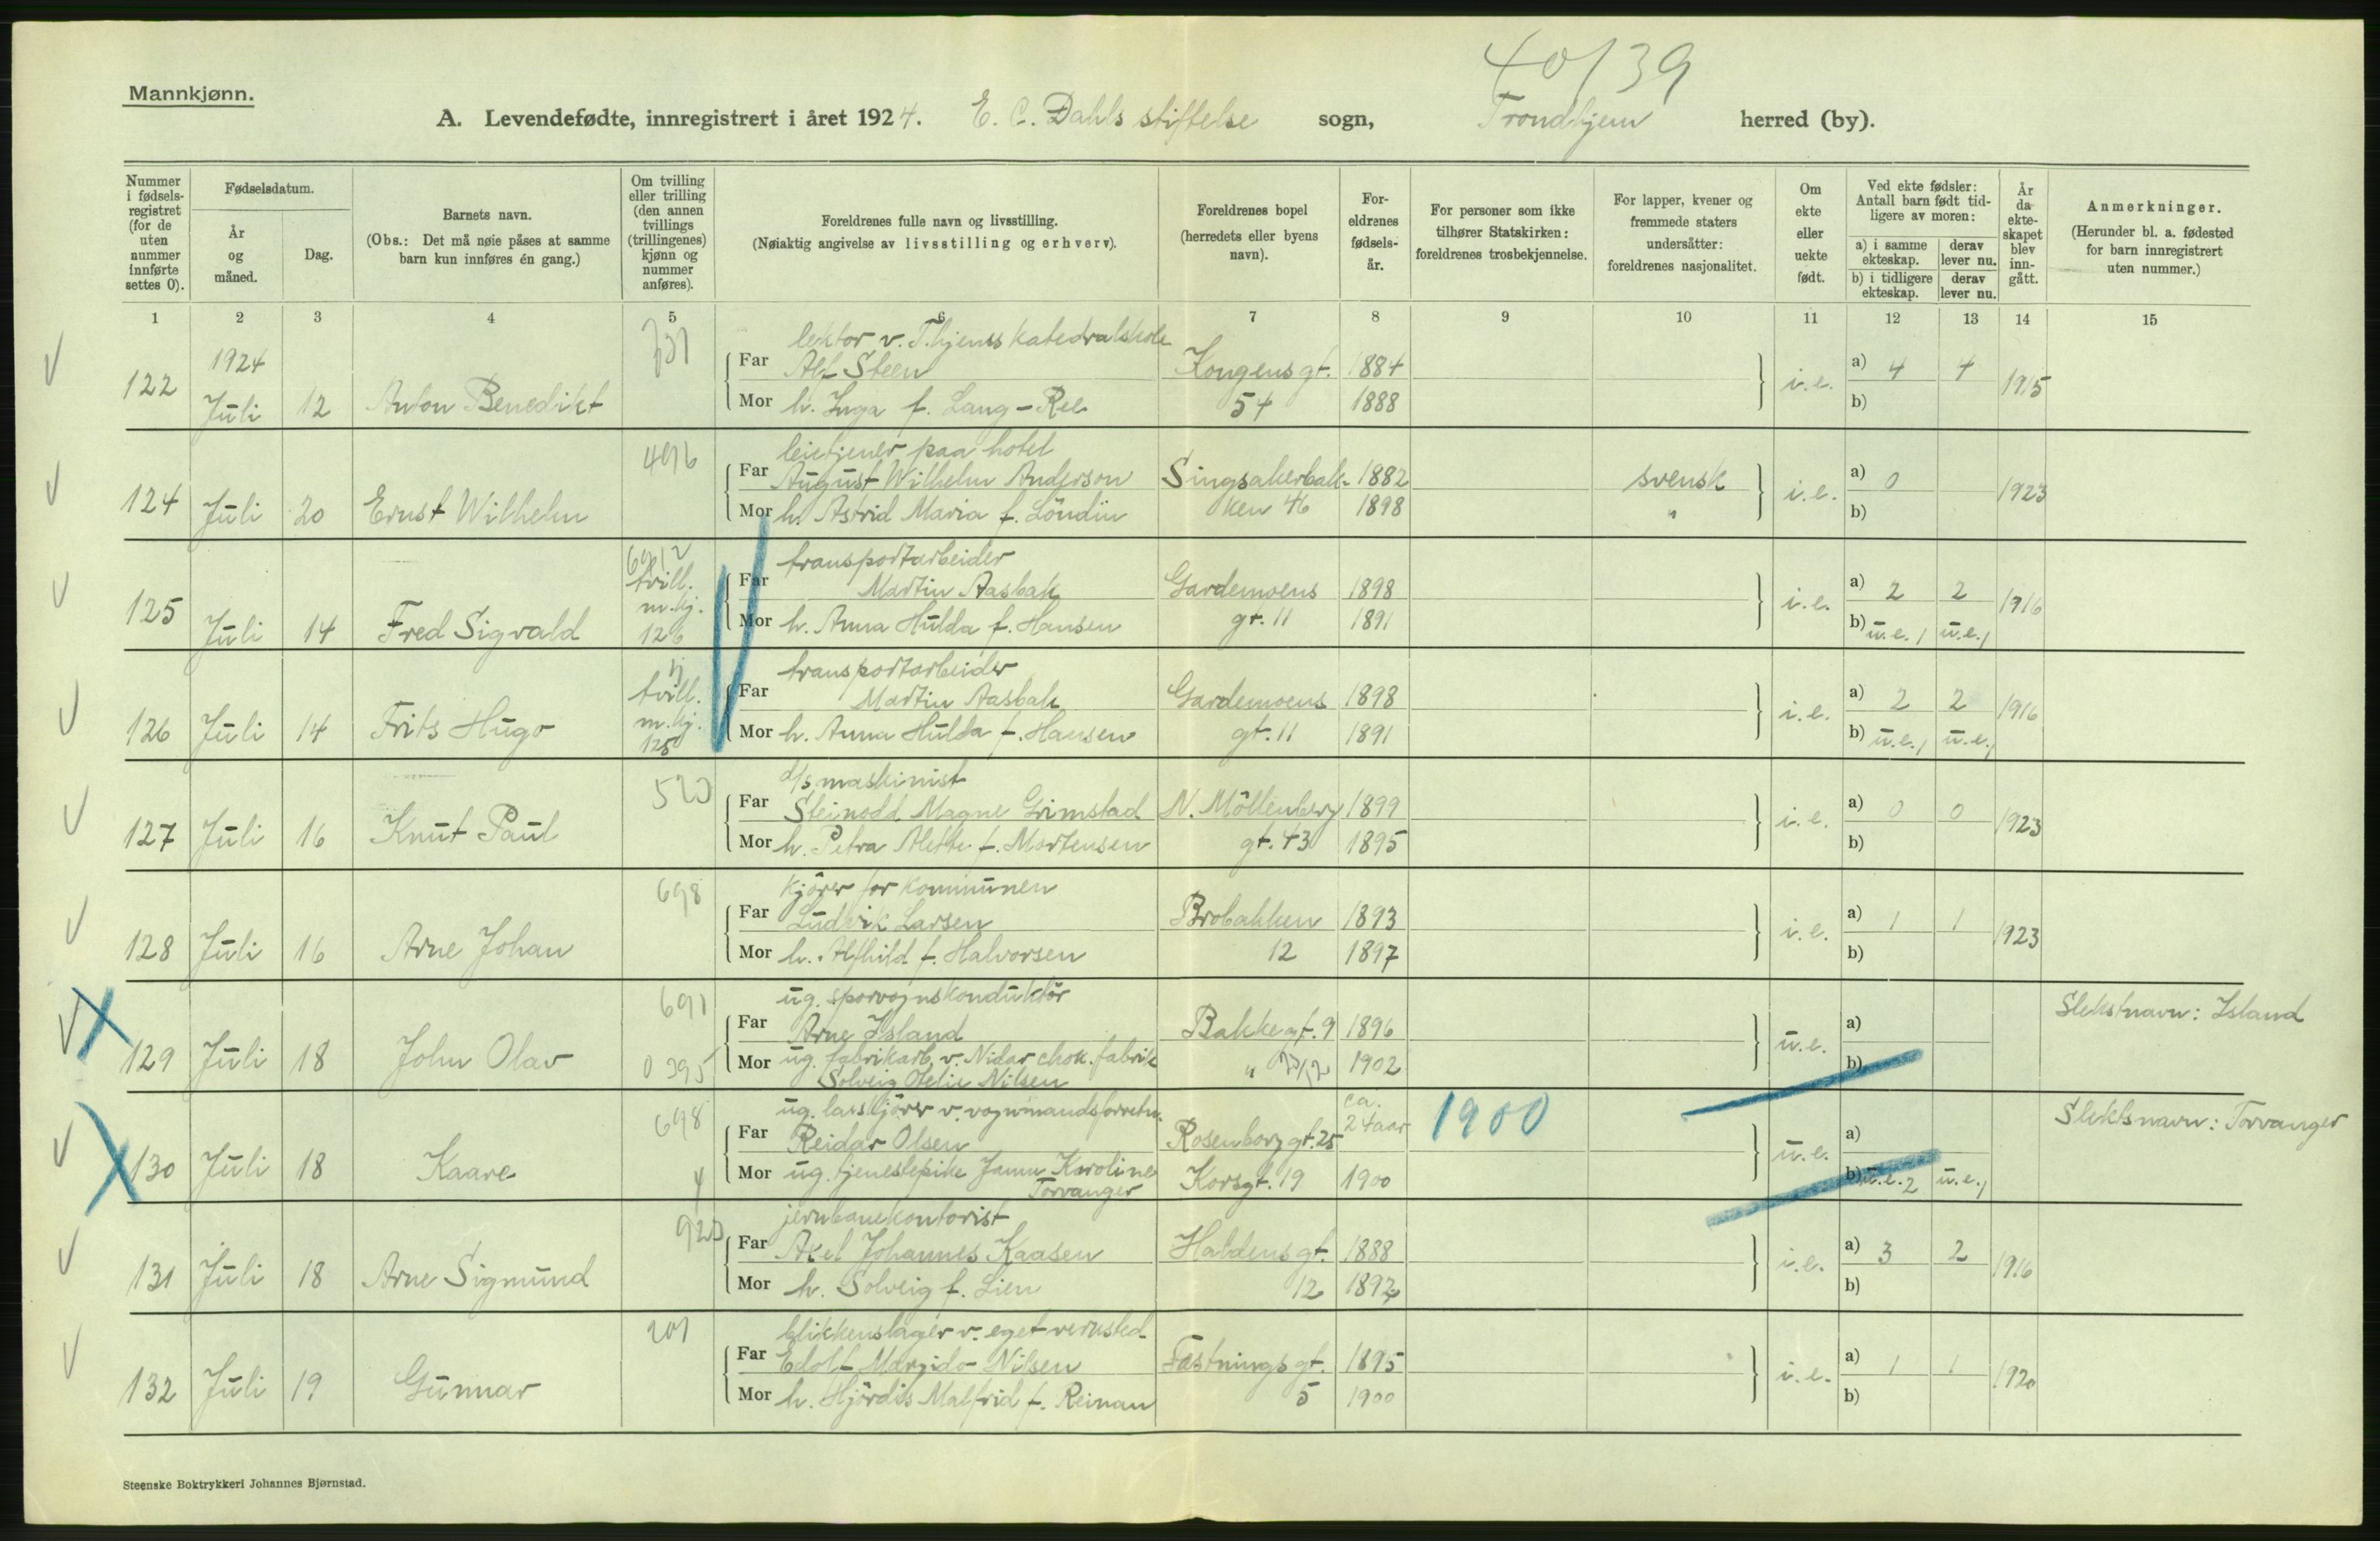 40/39
Mannkjønn.
A. Levendefødte, innregistrert i året 1924. E. C. Dahls stiftelse sogn, Trondhjem herred (by).
Nummer i fødselsregistret (for de uten nummer innførte settes 0).
Fødselsdatum.
År og måned.
Dag.
Barnets navn.
(Obs.: Det må nøie påses at samme barn kun innføres én gang.)
Om tvilling eller trilling (den annen tvillings (trillingenes) kjønn og nummer anføres).
Foreldrenes fulle navn og livsstilling.
(Nøiaktig angivelse av livsstilling og erhverv).
Foreldrenes bopel (herredets eller byens navn).
Foreldrenes fødselsår.
For personer som ikke tilhører Statskirken: foreldrenes trosbekjennelse.
For lapper, kvener og fremmede staters undersåtter: foreldrenes nasjonalitet.
Om ekte eller uekte født.
Ved ekte fødsler: Antall barn født tidligere av moren:
a) i samme ekteskap. derav lever nu.
b) i tidligere ekteskap. derav lever nu.
År da ekteskapet blev inngått.
Anmerkninger.
(Herunder bl. a. fødested for barn innregistrert uten nummer.)
1 2 3 4 5 6 7 8 9 10 11 12 13 14 15
lektor v. T.hjems katedralskole
122 1924 Juli 12 Anton Benedikt Far Alf Steen Kongens gt. 1884 i.e. a) 4 4 1915
Mor h. Inga f. Lang-Ree 54 1888 b)
496 leietjener paa hotel
124 Juli 20 Ernst Wilhelm Far August Wilhelm Anderson Singsakerbak- 1882 svensk i.e. a) 0 1923
Mor h. Astrid Maria f. Löndin ken 46 1898 " b)
transportarbeider
125 Juli 14 Fred Sigvald tvill. m.kj. 126 Far Martin Aasbak Gardemoens 1898 i.e. a) 2 2 1916
Mor h. Anna Hulda f. Hansen gt. 11 1891 b) u.e. 1 u.e. 1
transportarbeider
126 Juli 14 Frits Hugo tvill. m.kj. 125 Far Martin Aasbak Gardemoens 1898 i.e. a) 2 2 1916
Mor h. Anna Hulda f. Hansen gt. 11 1891 b) u.e. 1 u.e. 1
d/s maskinist
127 Juli 16 Knut Paul Far Steinodd Magne Grimstad N. Möllenberg 1899 i.e. a) 0 0 1923
Mor h. Petra Alette f. Mortensen gt. 43 1895 b)
698 kjörer for kommunen
128 Juli 16 Arne Johan Far Ludvik Larsen Brobakken 1893 i.e. a) 1 1 1923
Mor h. Alfhild f. Halvorsen 12 1897 b)
691 ug. sporvognskonduktör Slektsnavn: Island
129 Juli 18 John Olav Far Arne Island Bakkegt. 9 1896 u.e. a)
0 395 Mor ug. fabrikarb. v. Nidar chok. fabrik " 1902 b)
Solveig Otelie Nilsen
698 ug. lasskjörer v. vognmandsforretn. ca. 1900 Slektsnavn: Torvanger
130 Juli 18 Kaare Far Reidar Olsen Rosenborg gt. 25 24 aar u.e. a)
Mor ug. tjenestepike Janna Karoline Korsgt. 19 1900 b) u.e. 2 u.e. 1
Torvanger
jernbanekontorist
131 Juli 18 Arne Sigmund Far Axel Johannes Kaasen Haldens gt. 1888 i.e. a) 3 2 1916
Mor h. Solveig f. Lien 12 1892 b)
201 blikkenslager v. eget verksted
132 Juli 19 Gunnar Far Edolf Margido Nilsen Fæstnings gt. 1895 i.e. a) 1 1 1920
Mor h. Hjördis Malfrid f. Reinan 5 1900 b)
Steenske Boktrykkeri Johannes Bjørnstad.